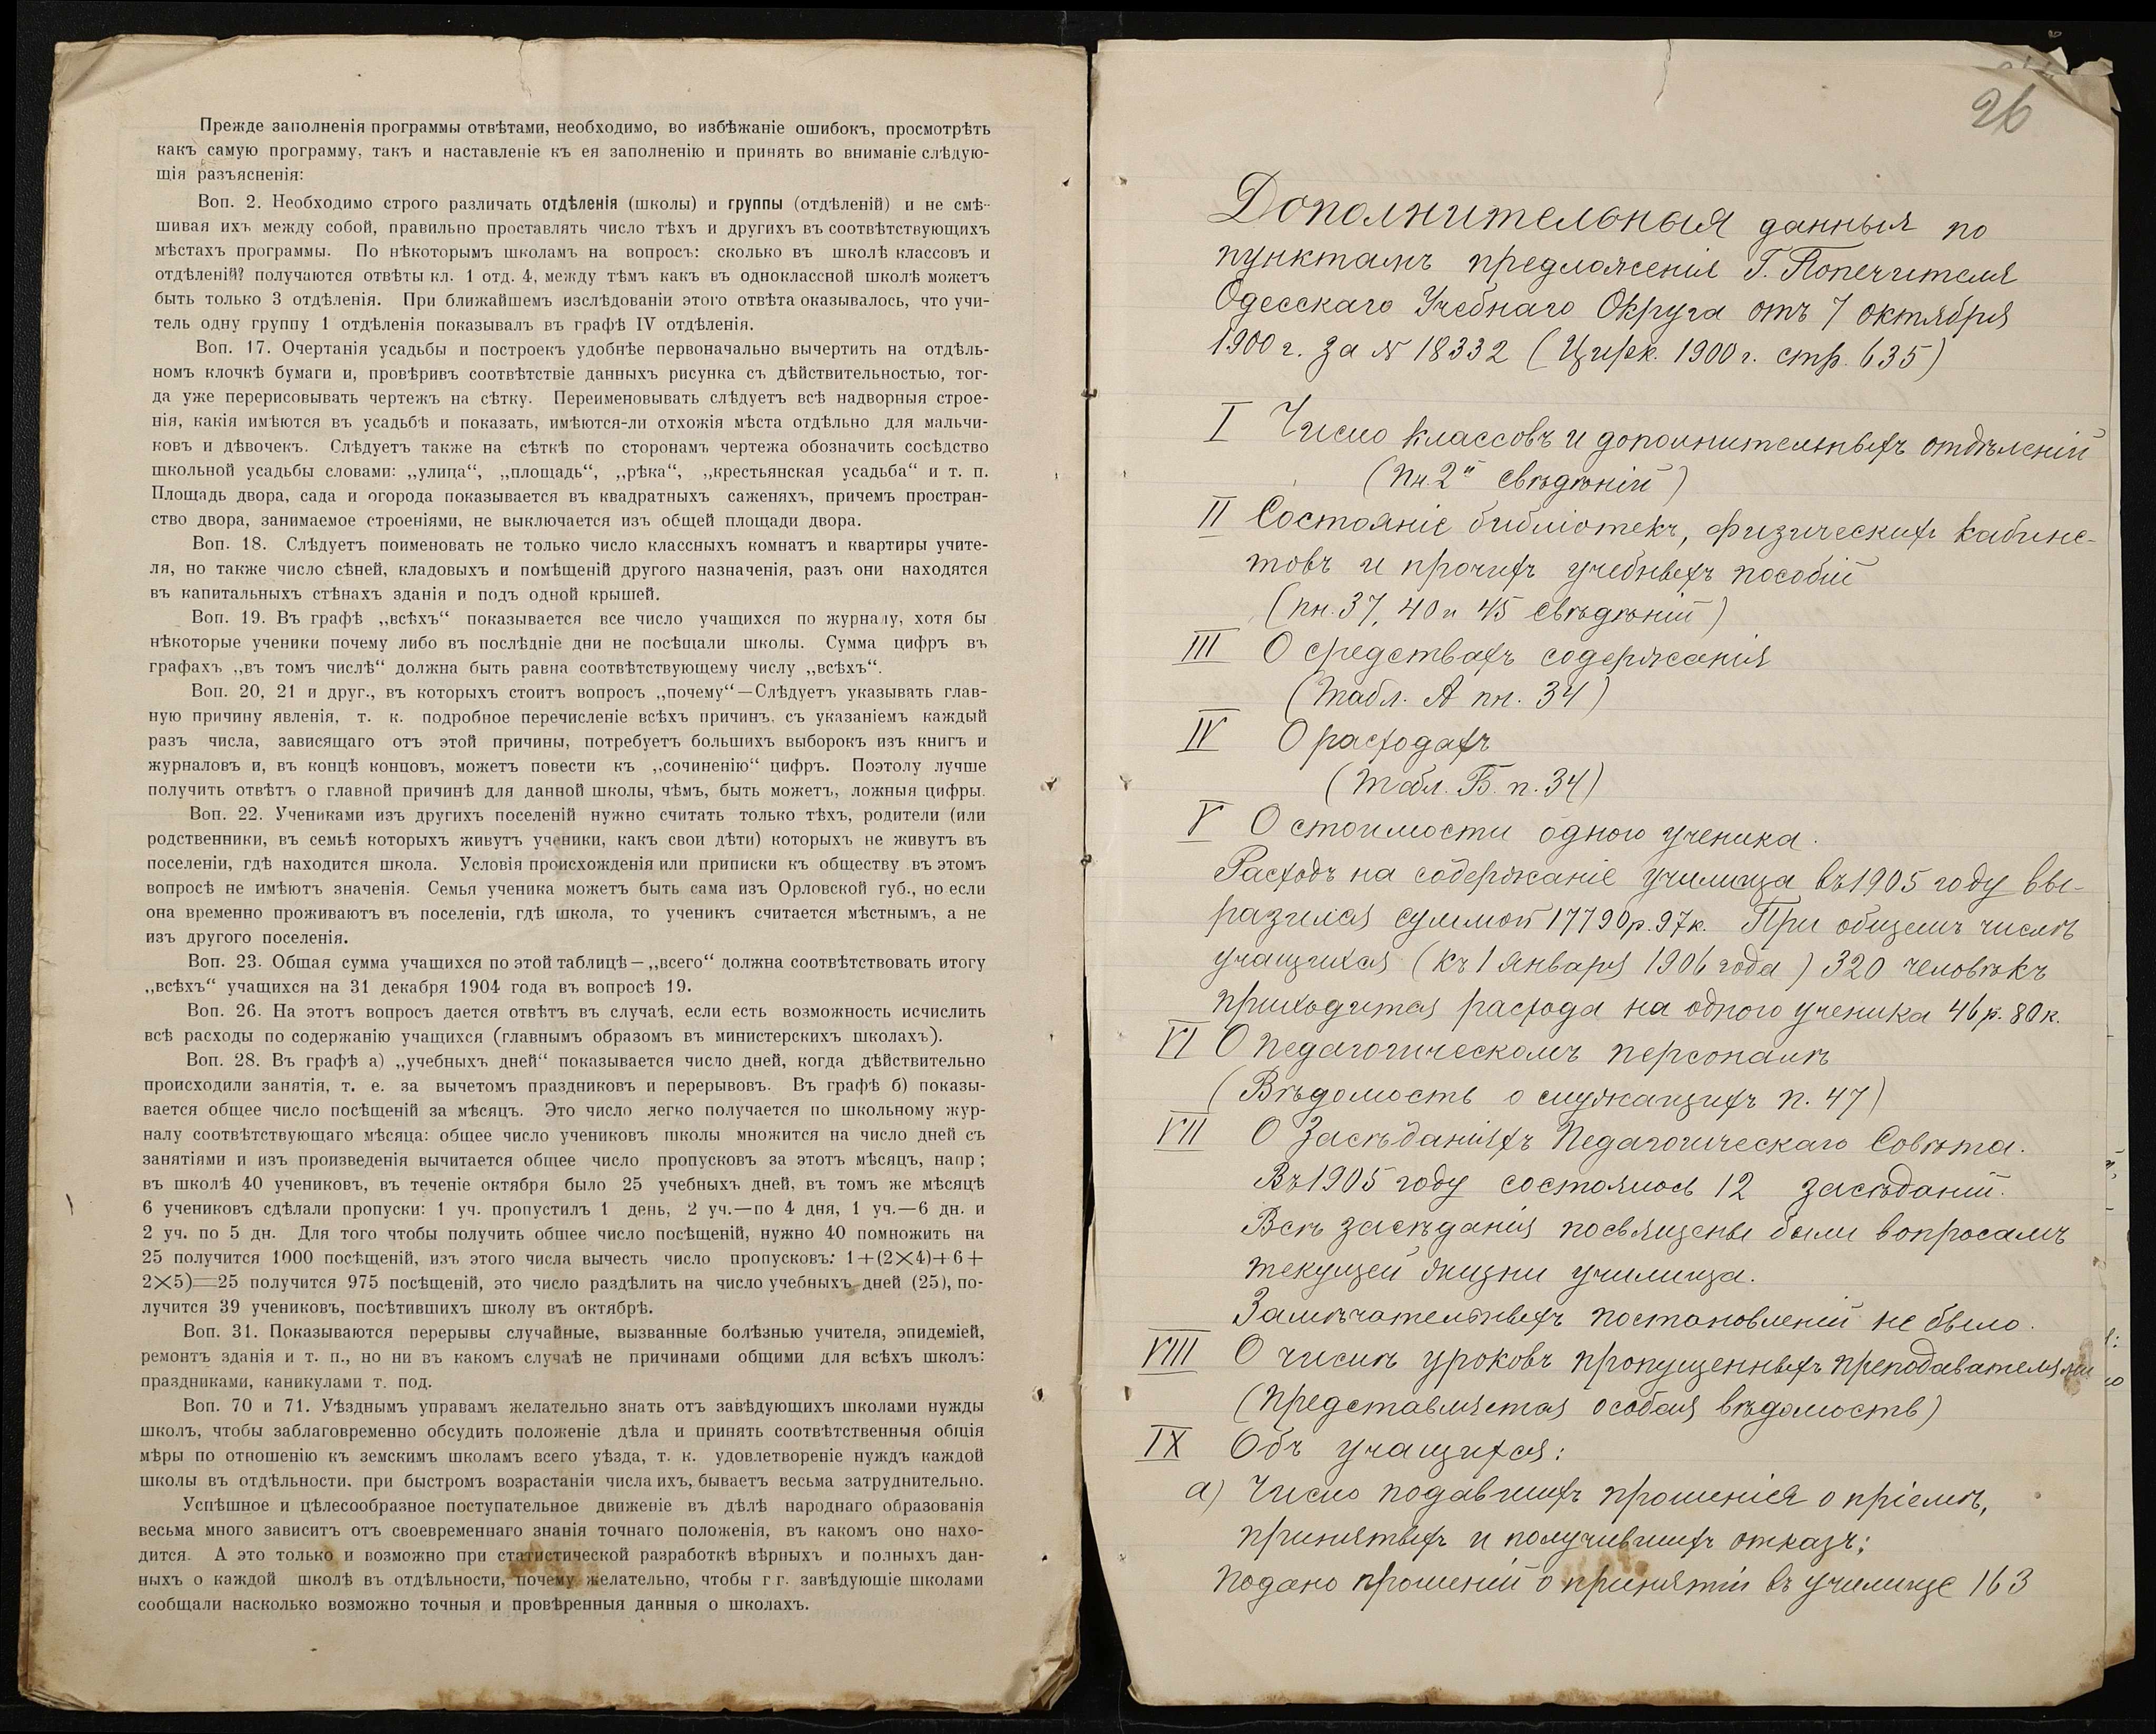 Прежде заполненія программы отвѣтами, необходимо, во избѣжаніе ошибокъ, просмотрѣть
какъ самую программу, такъ и наставленіе къ ея заполненію и принять во вниманіе слѣдую-
щія разъясненія:
Воп. 2. Необходимо строго различать отдѣленія (школы) и группы (отдѣленій) и не смѣ-
шивая ихъ между собой, правильно проставлять число тѣхъ и другихъ въ соотвѣтствующихъ
мѣстахъ программы. По нѣкоторымъ школамъ на вопросъ: сколько въ школѣ классовъ и
отдѣленій? получаются отвѣты кл. 1 отд. 4, между тѣмъ какъ въ одноклассной школѣ можетъ
быть только 3 отдѣленія. При ближайшемъ изслѣдованіи этого отвѣта оказывалось, что учи-
тель одну группу 1 отдѣленія показывалъ въ графѣ IV отдѣленія.
Воп. 17. Очертанія усадьбы и построекъ удобнѣе первоначально вычертить на отдѣль-
номъ клочкѣ бумаги и, провѣривъ соотвѣтствіе данныхъ рисунка съ дѣйствительностью, тог-
да уже перерисовывать чертежъ на сѣтку. Переименовывать слѣдуетъ всѣ надворныя строе-
нія, какія имѣются въ усадьбѣ и показать, имѣются-ли отхожія мѣста отдѣльно для мальчи-
ковъ и дѣвочекъ. Слѣдуетъ также на сѣткѣ по сторонамъ чертежа обозначить сосѣдство
школьной усадьбы словами: „улица“, „площадь“, „рѣка“, „крестьянская усадьба“ и т. п.
Площадь двора, сада и огорода показывается въ квадратныхъ саженяхъ, причемъ простран-
ство двора, занимаемое строеніями, не выключается изъ общей площади двора.
Воп. 18. Слѣдуетъ поименовать не только число классныхъ комнатъ и квартиры учите-
ля, но также число сѣней, кладовыхъ и помѣщеній другого назначенія, разъ они находятся
въ капитальныхъ стѣнахъ зданія и подъ одной крышей.
Воп. 19. Въ графѣ „всѣхъ“ показывается все число учащихся по журналу, хотя бы
нѣкоторые ученики почему либо въ послѣдніе дни не посѣщали школы. Сумма цифръ въ
графахъ „въ томъ числѣ“ должна быть равна соотвѣтствующему числу „всѣхъ“.
Воп. 20, 21 и друг., въ которыхъ стоитъ вопросъ „почему“—Слѣдуетъ указывать глав-
ную причину явленія, т. к. подробное перечисленіе всѣхъ причинъ, съ указаніемъ каждый
разъ числа, зависящаго отъ этой причины, потребуетъ большихъ выборокъ изъ книгъ и
журналовъ и, въ концѣ концовъ, можетъ повести къ „сочиненію“ цифръ. Поэтолу лучше
получить отвѣтъ о главной причинѣ для данной школы, чѣмъ, быть можетъ, ложныя цифры.
Воп. 22. Учениками изъ другихъ поселеній нужно считать только тѣхъ, родители (или
родственники, въ семьѣ которыхъ живутъ ученики, какъ свои дѣти) которыхъ не живутъ въ
поселеніи, гдѣ находится школа. Условія происхожденія или приписки къ обществу въ этомъ
вопросѣ не имѣютъ значенія. Семья ученика можетъ быть сама изъ Орловской губ., но если
она временно проживаютъ въ поселеніи, гдѣ школа, то ученикъ считается мѣстнымъ, а не
изъ другого поселенія.
Воп. 23. Общая сумма учащихся по этой таблицѣ—„всего“ должна соотвѣтствовать итогу
„всѣхъ“ учащихся на 31 декабря 1904 года въ вопросѣ 19.
Воп. 26. На этотъ вопросъ дается отвѣтъ въ случаѣ, если есть возможность исчислить
всѣ расходы по содержанію учащихся (главнымъ образомъ въ министерскихъ школахъ).
Воп. 28. Въ графѣ а) „учебныхъ дней“ показывается число дней, когда дѣйствительно
происходили занятія, т. е. за вычетомъ праздниковъ и перерывовъ. Въ графѣ б) показы-
вается общее число посѣщеній за мѣсяцъ. Это число легко получается по школьному жур-
налу соотвѣтствующаго мѣсяца: общее число учениковъ школы множится на число дней съ
занятіями и изъ произведенія вычитается общее число пропусковъ за этотъ мѣсяцъ, напр;
въ школѣ 40 учениковъ, въ теченіе октября было 25 учебныхъ дней, въ томъ же мѣсяцѣ
6 учениковъ сдѣлали пропуски: 1 уч. пропустилъ 1 день, 2 уч.—по 4 дня, 1 уч.—6 дн. и
2 уч. по 5 дн. Для того чтобы получить общее число посѣщеній, нужно 40 помножить на
25 получится 1000 посѣщеній, изъ этого числа вычесть число пропусковъ: 1+(2×4)+6+
2×5)=25 получится 975 посѣщеній, это число раздѣлить на число учебныхъ дней (25), по-
лучится 39 учениковъ, посѣтившихъ школу въ октябрѣ.
Воп. 31. Показываются перерывы случайные, вызванные болѣзнью учителя, эпидеміей,
ремонтъ зданія и т. п., но ни въ какомъ случаѣ не причинами общими для всѣхъ школъ:
праздниками, каникулами т. под.
Воп. 70 и 71. Уѣзднымъ управамъ желательно знать отъ завѣдующихъ школами нужды
школъ, чтобы заблаговременно обсудить положеніе дѣла и принять соотвѣтственныя общія
мѣры по отношенію къ земскимъ школамъ всего уѣзда, т. к. удовлетвореніе нуждъ каждой
школы въ отдѣльности, при быстромъ возрастаніи числа ихъ, бываетъ весьма затруднительно.
Успѣшное и цѣлесообразное поступательное движеніе въ дѣлѣ народнаго образованія
весьма много зависитъ отъ своевременнаго знанія точнаго положенія, въ какомъ оно нахо-
дится. А это только и возможно при статистической разработкѣ вѣрныхъ и полныхъ дан-
ныхъ о каждой школѣ въ отдѣльности, почему желательно, чтобы г г. завѣдующіе школами
сообщали насколько возможно точныя и провѣренныя данныя о школахъ.
26
Дополнительныя данныя по
пунктамъ предложенія Г. Попечителя
Одесскаго Учебнаго Округа отъ 7 октября
1900 г. за № 18332 (Цирк. 1900 г. стр. 635)
I Число классовъ и дополнительныхъ отдѣленій
(пн. 2й свѣдѣній)
II Состояніе библіотекъ, физическихъ кабине-
товъ и прочихъ учебныхъ пособій
(пн. 37, 40 и 45 свѣдѣній)
III О средствахъ содержанія
(Табл. А пн. 34)
IV О расходахъ
(Табл. Б. п. 34)
V О стоимости одного ученика.
Расходъ на содержаніе училища въ 1905 году вы-
разился суммой 17790 р. 97 к. При общемъ числѣ
учащихся (къ 1 Января 1906 года) 320 человѣкъ
приходится расхода на одного ученика 46 р. 80 к.
VI О педагогическомъ персоналѣ
(Вѣдомость о служащихъ п. 47)
VII О Засѣданіяхъ Педагогическаго Совѣта.
Въ 1905 году состоялось 12 засѣданій.
Всѣ засѣданія посвящены были вопросамъ
текущей жизни училища.
Замѣчательныхъ постановленій не было.
VIII О числѣ уроковъ пропущенныхъ преподавателями
(представляется особая вѣдомость)
IX Объ учащихся:
а) Число подавшихъ прошенія о пріемѣ,
принятыхъ и получившихъ отказъ:
Подано прошеній о принятіи въ училище 163